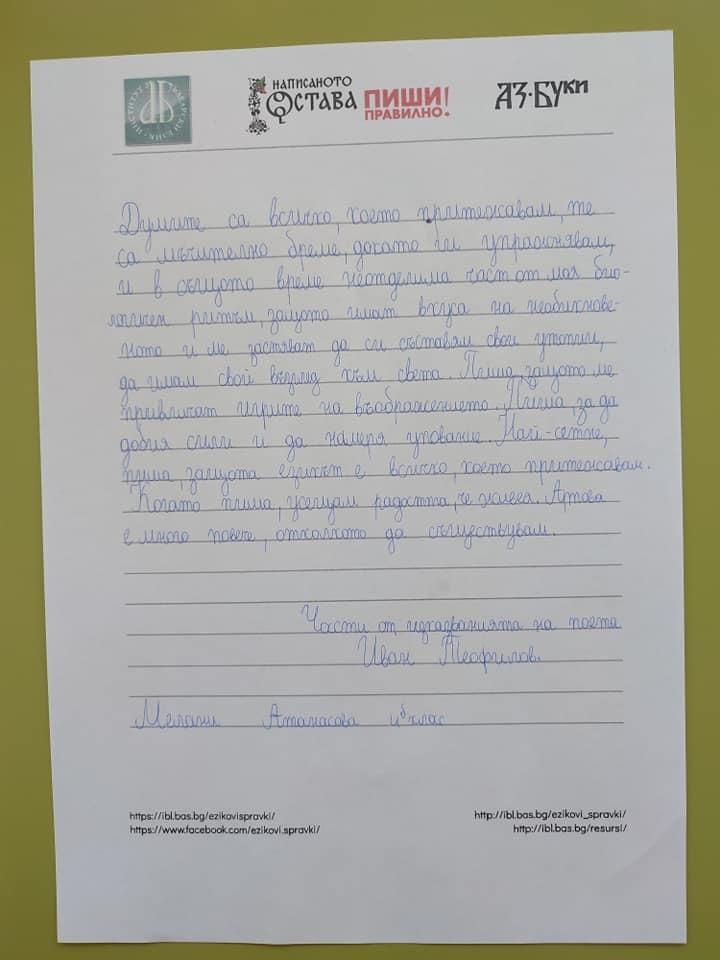 ИНСТИТУТ ЗА БЪЛГАРСКИ ЕЗИК
НАПИСАНОТО
ОСТАВА
ПИШИ
ПРАВИЛНО!
АЗ·БУКИ
Думите са всичко, което притежавам, те
са мъчително бреме, докато ги упражнявам,
и в същото време неотделима част от моя био-
логичен ритъм, защото имат вкуса на необикнове-
ното и ме заставят да си съставям свои утопии,
да имам свой възглед към света. Пиша, защото ме
привличат игрите на въображението. Пиша, за да
добия сили и да намеря упование. Най-сетне,
пиша, защота езикът е всичко, което притежавам.
Когато пиша, усещам радостта, че живея. А това
е много повече, отколкото да съществувам.
Части от на поета
Иван Теофилов.
Мелани Атанасова клас
https://ibl.bas.bg/ezikovispravki/
https://www.facebook.com/ezikovi.spravki/
http://ibl.bas.bg/ezikovi_spravki/
http://ibl.bas.bg/resursi/